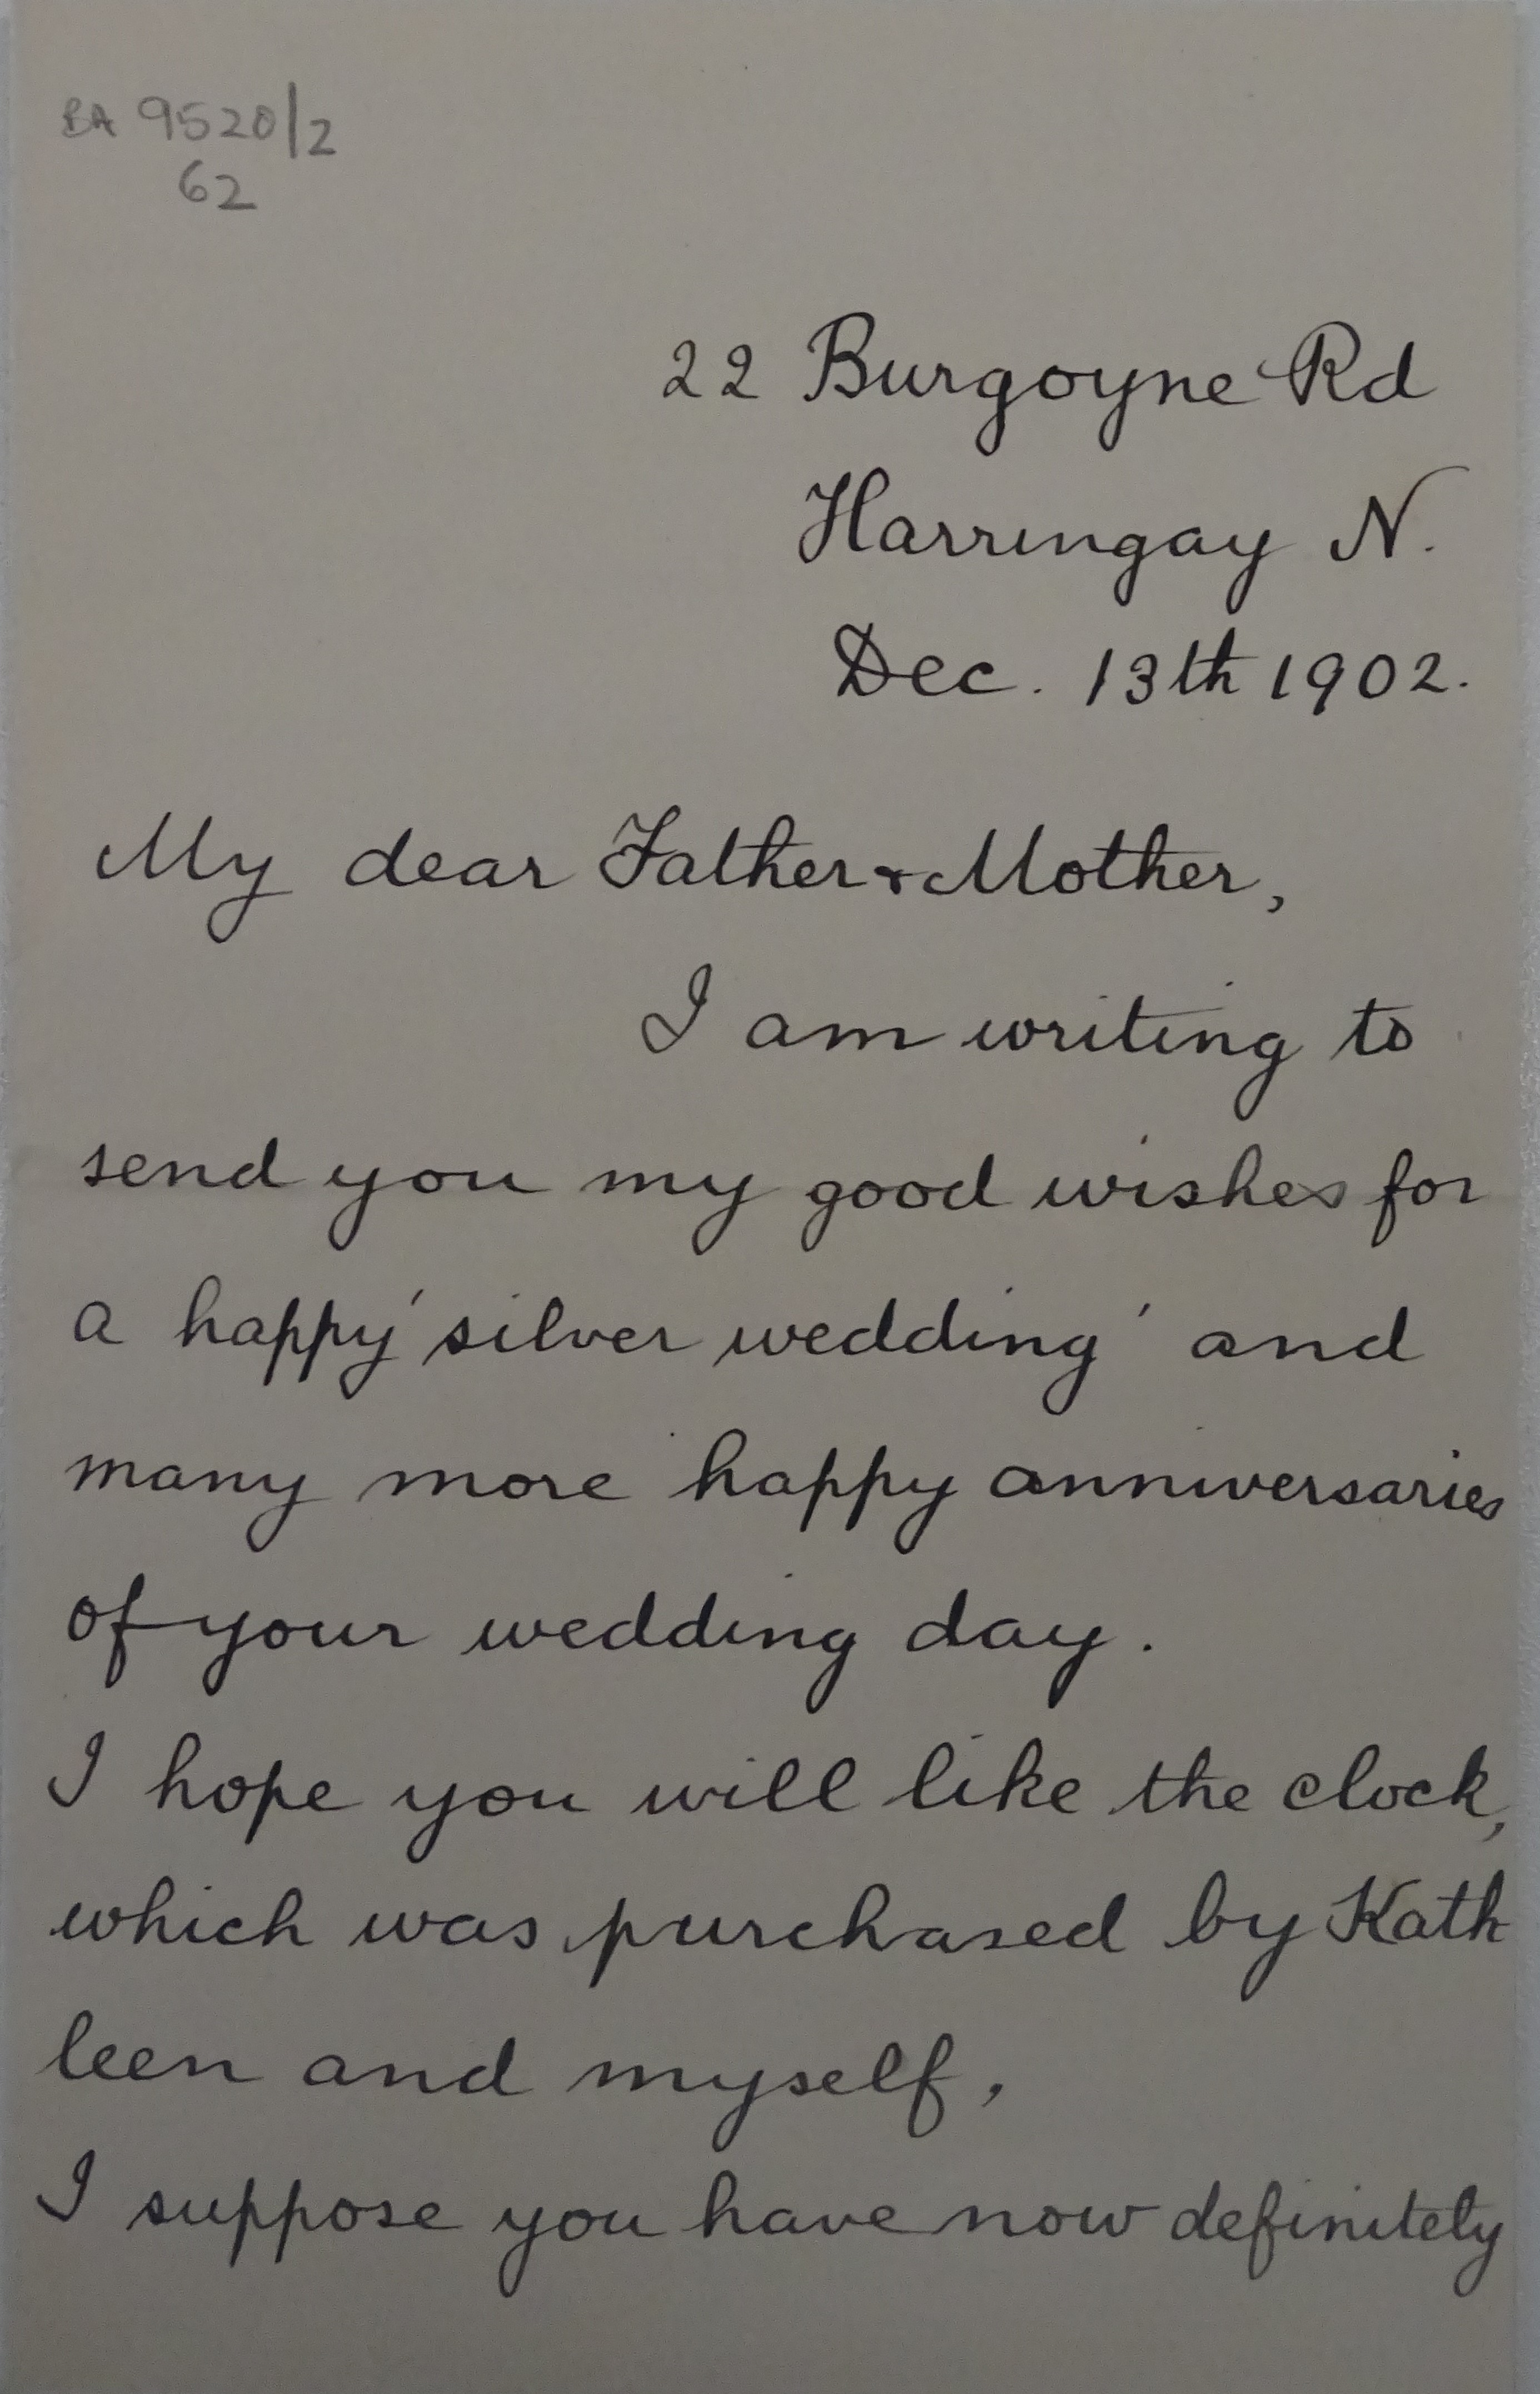 BA 9520/2
62
22 Burgoyne Rd
Harringay N.
Dec. 13th 1902.
My dear Father & Mother,
I am writing to
send you my good wishes for
a happy 'silver wedding' and
many more happy anniversaries
of your wedding day.
I hope you will like the clock,
which was purchased by Kath
leen and myself.
I suppose you have now definitely